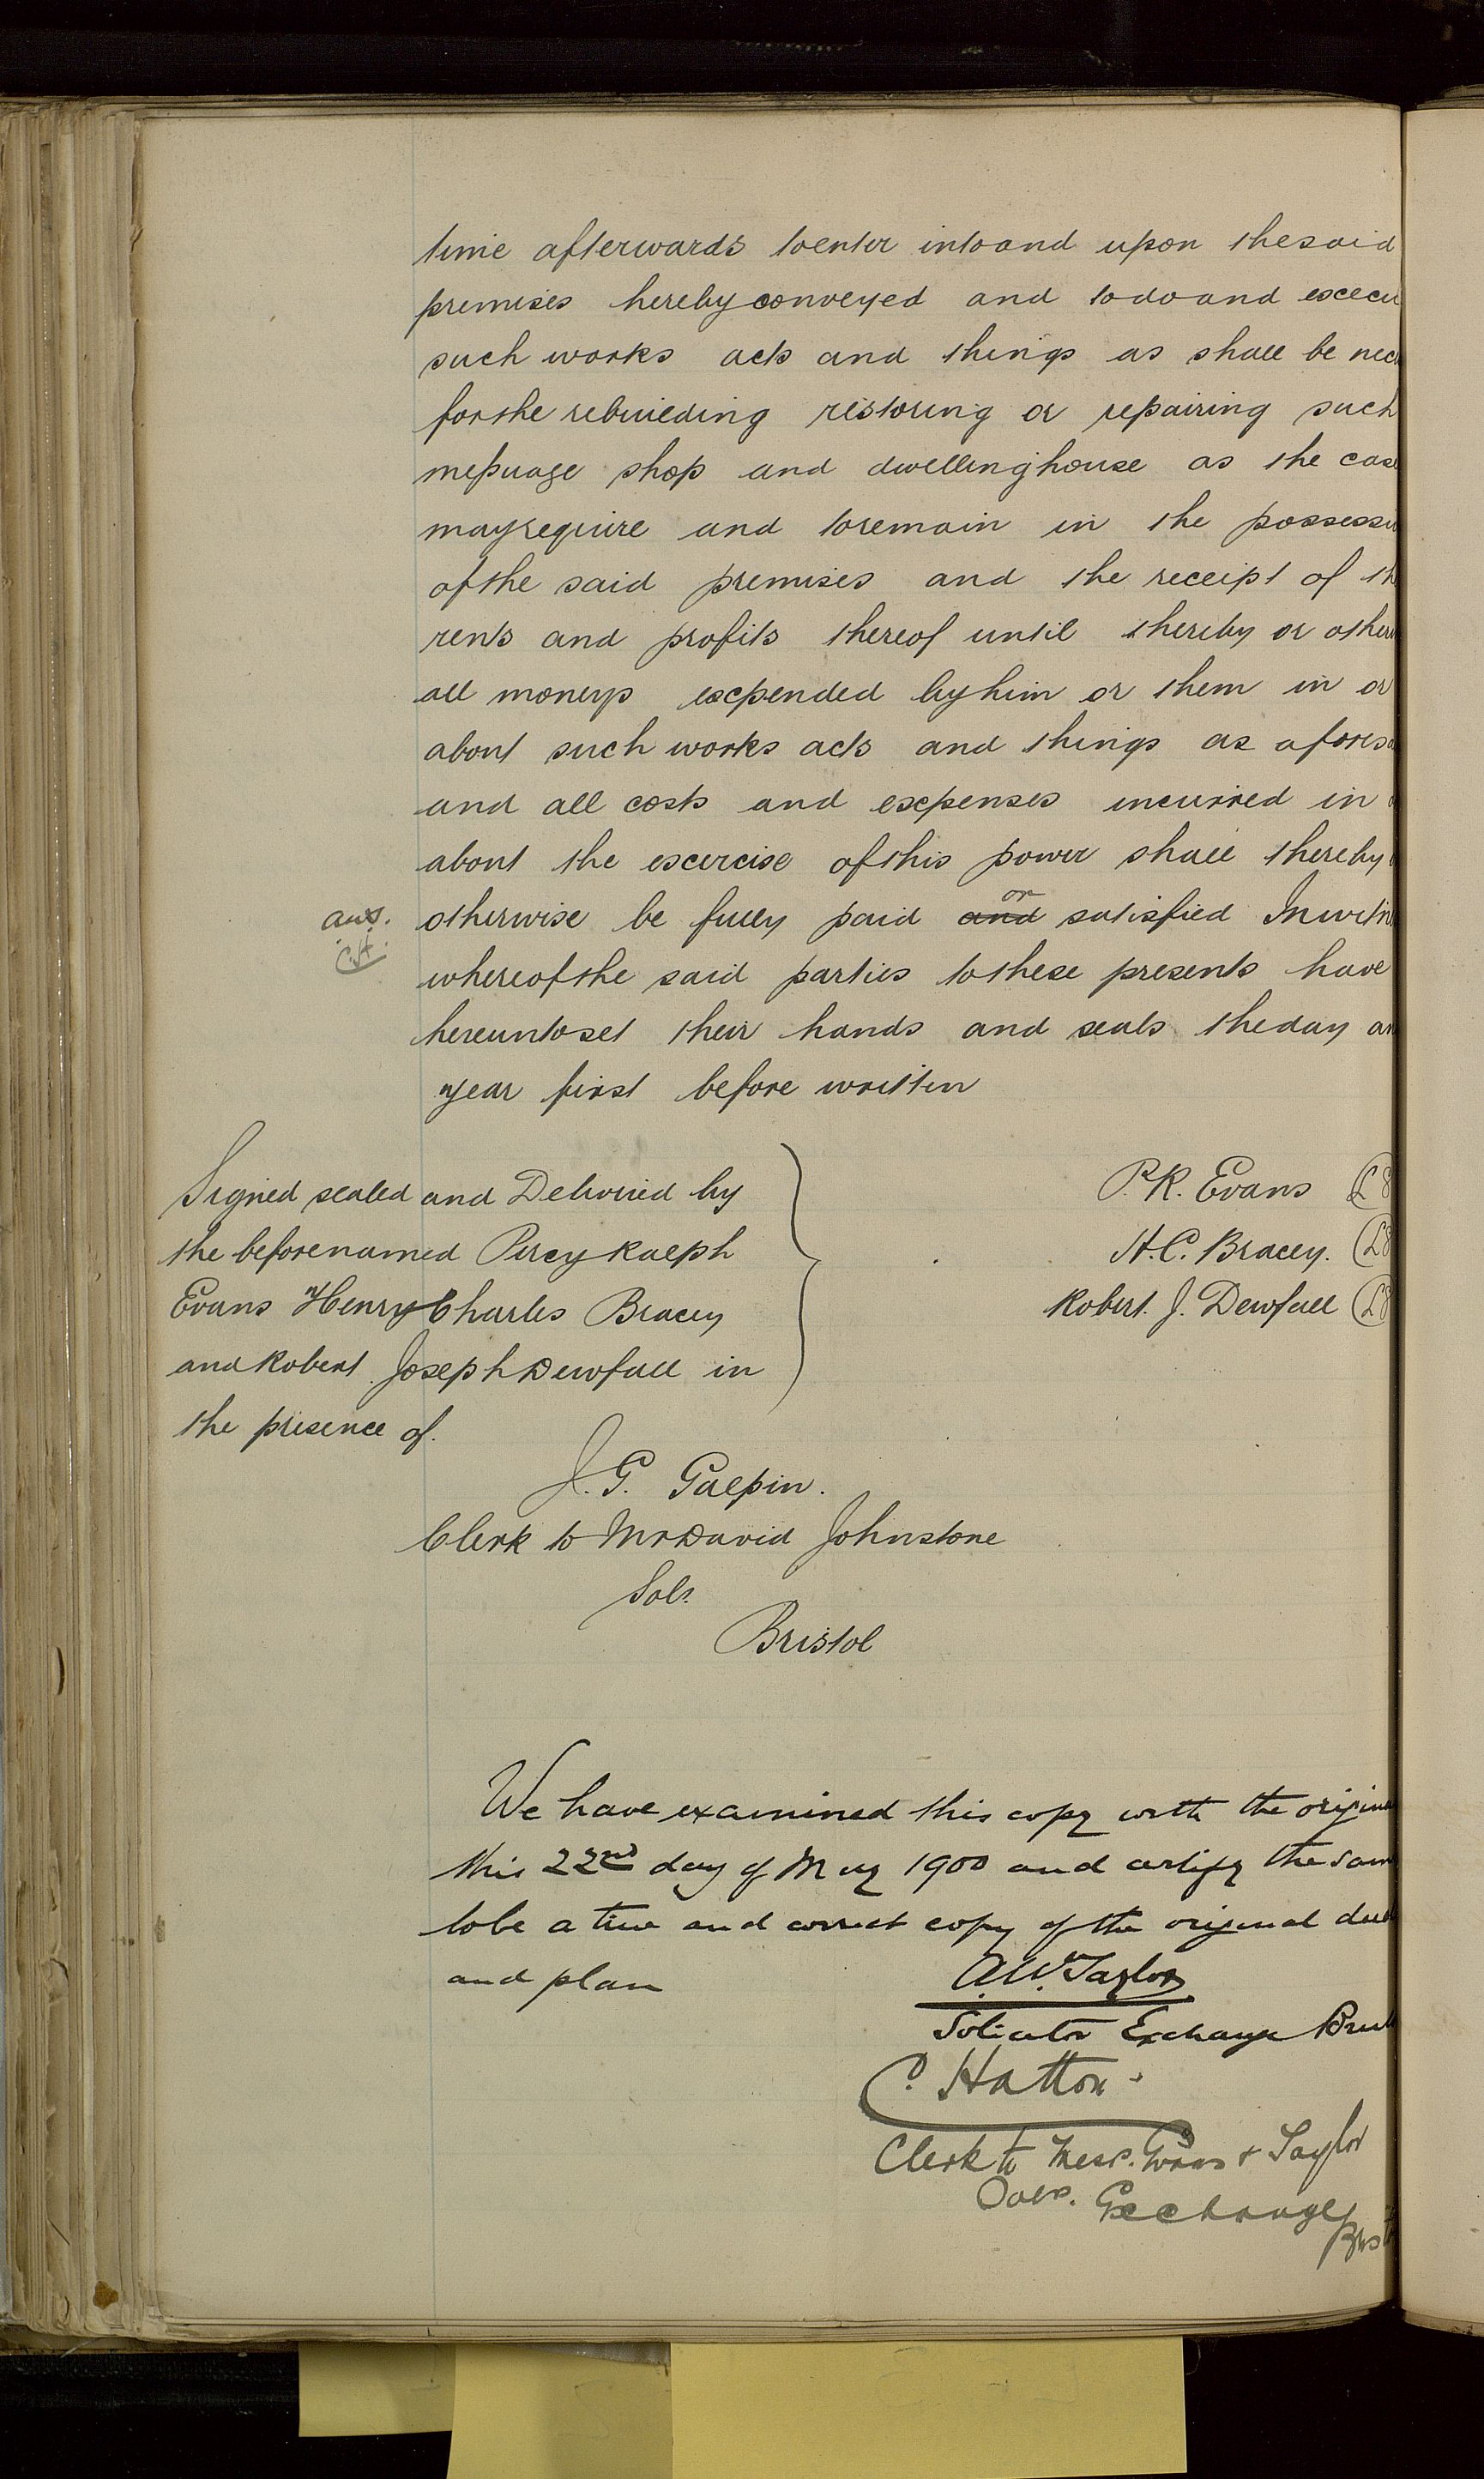 time afterwards to enter into and upon the said
premises hereby conveyed and to do and execu
such works acts and things as shall be nec
for the rebuilding restoring or repairing such
messuage shop and dwellinghouse as the case
may require and to remain in the possessi
of the said premises and the receipt of th
rents and profits thereof until thereby or otherw
all moneys expended by him or them in or
about such works acts and things as aforesa
and all costs and expenses incurred in
about the exercise of this power shall thereby
or
otherwise be fully paid and satisfied In witn
C.H.
whereof the said parties to these presents have
hereunto set their hands and seals the day an
year first before written
Signed sealed and Delivered by
the beforenamed Percy Ralph
Evans Henry Charles Bracey
and Robert Joseph Dewfall in
the presence of.
P.R. Evans LS
H.C. Bracey. LS
Robert. J. Dewfall LS
J. G. Galpin.
Clerk to Mr David Johnstone
Solr.
Bristol
We have examined this copy with the origina
this 22nd day of May 1900 and certify the sam
to be a true and correct copy of the original deed
and plan
A.W. Taylor
Solicitor Exchange
C. Hatton.
Clerk to Mess. Evans & Taylor
Exchange
Brist